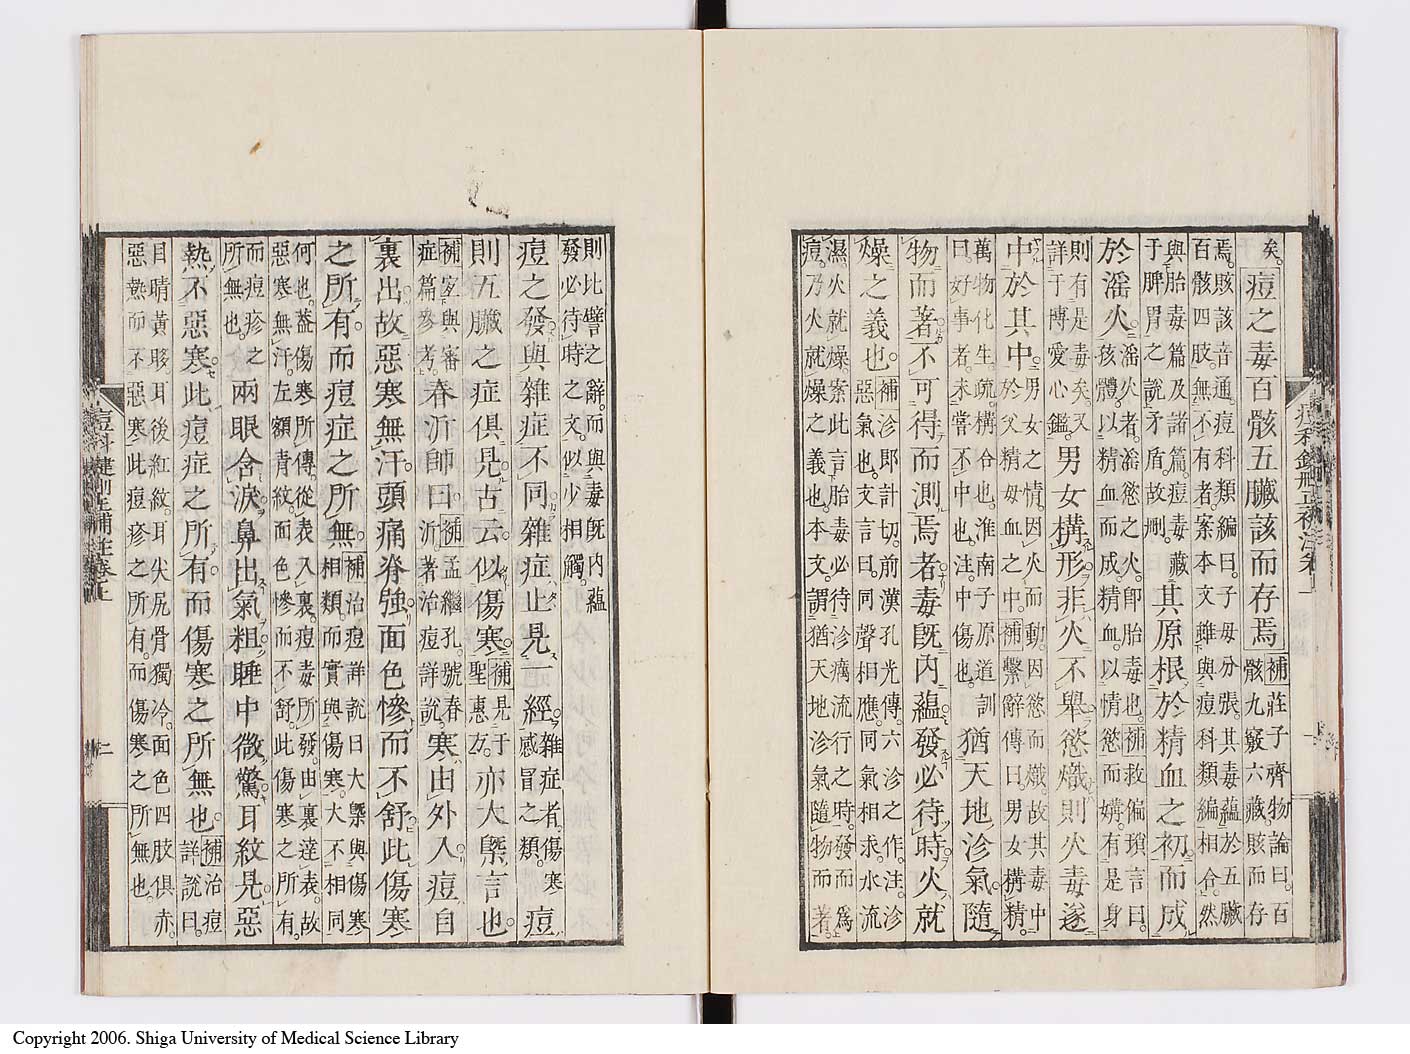 矣。痘之毒百骸五臟該而存焉補莊子齊物論曰。百骸九竅六藏賅而存
焉。賅該音通。痘科類編曰。子母分張。其毒蘊於五臟百骸四肢。無不有者。案本文雖與痘科類編相合。然
與胎毒篇及諸篇。痘毒藏于脾胃之說。矛盾。故刪。其原根於精血之初。而成
於滛火。滛火者。滛慾之火。卽胎毒也。補救偏瑣言曰。孩體。以精血而成。精血。以情慾而媾。有是身
則有是毒矣。又詳于博愛心鑑。男女構形非火不擧慾熾則火毒遂
中於其中。男女之情。因火而動。因慾而熾。故其毒中於父精母血之中。補繫辭傳曰。男女構精
萬物化生。疏。構合也。淮南子原道訓曰。好事者。未嘗不中也。注。中傷也。猶天地沴氣隨
物而著不可得而測焉者毒旣內蘊發必待時火就
燥之義也補沴郎計切。前漢孔光傳。六沴之作。注。沴惡氣也。文言曰。同聲相應。同氣相求。水流
濕。火就燥。案此言胎毒必待沴癘流行之時。發而爲痘。乃火就燥之義也。本文。謂猶天地沴氣隨物而著。
則比譬之辭。而與毒旣內蘊發必待時之文。似少相觸。
痘之發與雜症不同雜症止見一經雜症者。傷寒感冒之類。痘
則五臟之症俱見古云似傷寒補見于聖惠方。亦大槩言也。
補宜與審症篇參考。春沂師曰。補孟繼孔號春沂。著治痘詳說。寒由外入痘自
裏出故惡寒無汗頭痛脊強面色慘而不舒此傷寒
之所有而痘症之所無補治痘詳說曰大槩與傷寒相類。而實與傷寒。大不相同
何也。蓋傷寒所傳。從表入裏。痘毒所發。由裏達表。故惡寒無汗。左額青紋。而色慘而不舒。此傷寒之所有。
而痘疹之所無也。兩眼含淚鼻出氣粗睡中微驚耳紋見惡
熱不惡寒此痘症之所有而傷寒之所無也補治痘詳說曰。
目睛黃眵耳後紅紋。耳尖尻骨獨冷。面色四肢俱赤。惡熱而不惡寒此痘疹之所有。而傷寒之所無也。
Copyright 2006. Shiga University of Medical Science Library